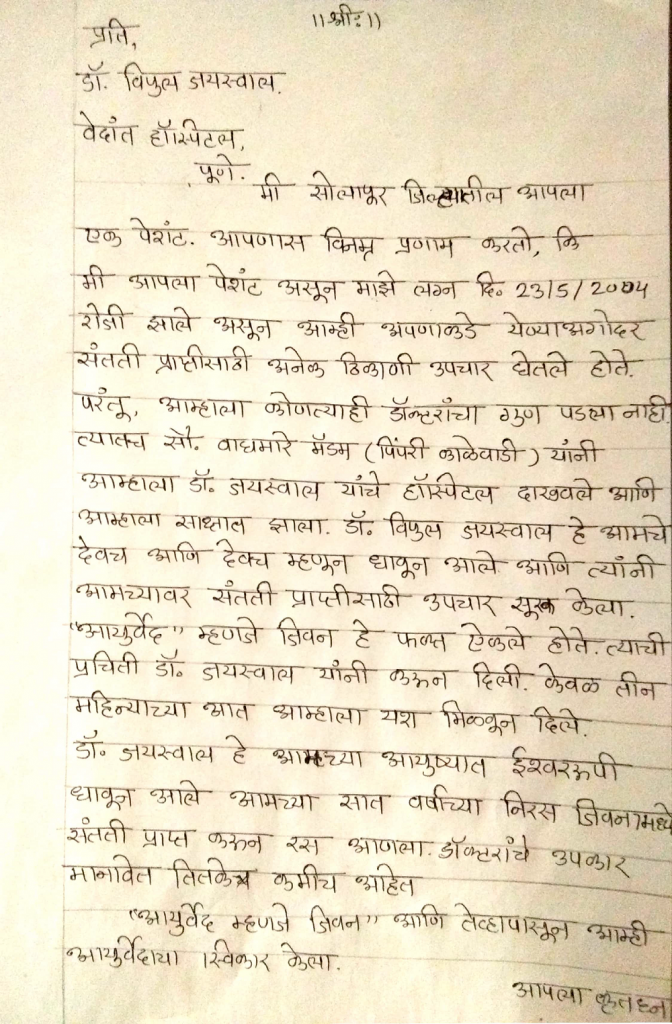 ॥श्रीः॥
प्रति,
डॉ. विपुल जयस्वाल.
वेदांत हॉस्पिटल,
पूणे.
मी सोलापूर जिल्ह्यातील आपला
एक पेशंट. आपणास विनम्र प्रणाम करतो, कि
मी आपला पेशंट असून माझे लग्न दि. 23/5/2004
रोजी झाले असून आम्ही अपणाकडे येण्याअगोदर
संतती प्राप्तीसाठी अनेक ठिकाणी उपचार घेतले होते.
परंतू, आम्हाला कोणत्याही डॉक्टरांचा गुण पडला नाही.
त्यातच सौ. वाघमारे मॅडम (पिंपरी काळेवाडी) यांनी
आम्हाला डॉ. जयस्वाल यांचे हॉस्पिटल दाखवले आणि
आम्हाला साक्षात झाला. डॉ. विपुल जयस्वाल हे आमचे
देवच आणि देवच म्हणून धावून आले आणि त्यांनी
आमच्यावर संतती प्राप्तीसाठी उपचार सूरू केला.
"आयुर्वेद" म्हणजे जिवन हे फक्त ऐकले होते. त्याची
प्रचिती डॉ. जयस्वाल यांनी करून दिली. केवळ तीन
महिन्याच्या आत आम्हाला यश मिळवून दिले.
डॉ. जयस्वाल हे आमच्या आयुष्यात ईश्वररूपी
धावून आले आमच्या सात वर्षाच्या निरस जिवनामध्ये
संतती प्राप्त करून रस आणला. डॉक्टरांचे उपकार
मानावेत तितकेच कमीच आहेत
"आयुर्वेद म्हणजे जिवन" आणि तेव्हापासून आम्ही
आयुर्वेदाचा स्विकार केला.
आपला कृतघ्न